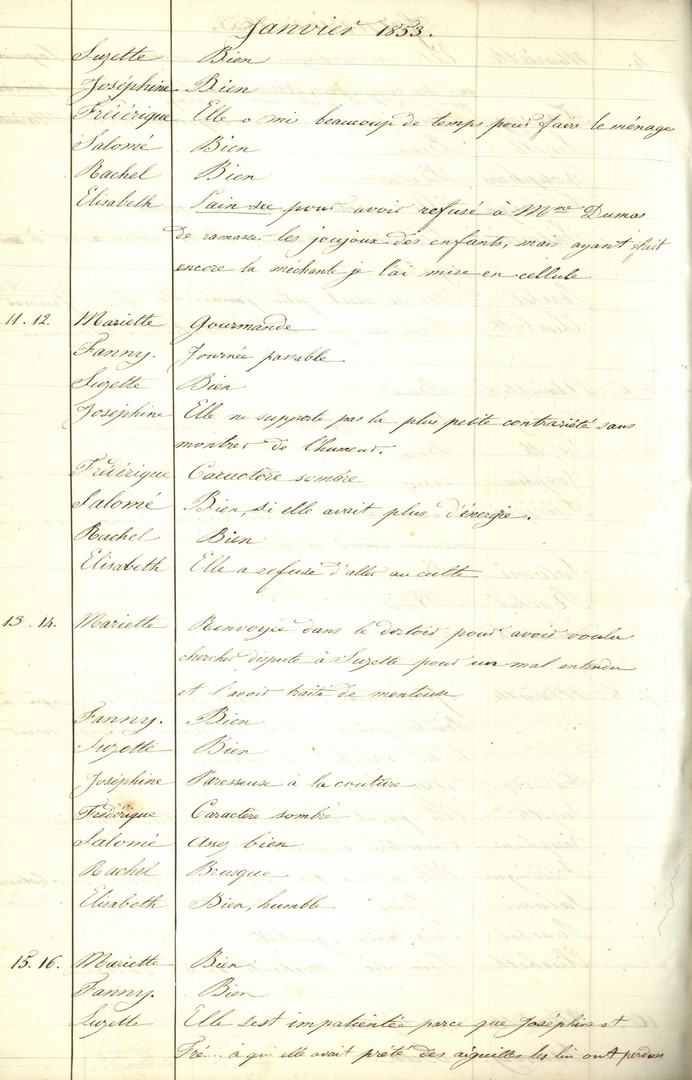 Janvier 1853.
Suzette Bien
Joséphine Bien
Frédérique Elle a mis beaucoup de temps pour faire le ménage
Salomé Bien
Rachel Bien
Elisabeth Pain sec pour avoir refusé à Mme Dumas
de ramasser les joujoux des enfants, mais ayant fait
encore la méchante je l'ai mise en cellule
11.12. Mariette Gourmande
Fanny. Journée passable
Suzette Bien
Joséphine Elle ne supporte pas la plus petite contrariété sans
montrer de l'humeur.
Frédérique Caractère sombre
Salomé Bien, si elle avait plus d'énergie.
Rachel Bien
Elisabeth Elle a refusé d'aller au culte
13.14. Mariette Renvoyée dans le dortoir pour avoir voulu
chercher dispute à Suzette pour un mal entendu
et l'avoir traité de menteuse
Fanny. Bien
Suzette Bien
Joséphine Paresseuse à la couture
Frédérique Caractère sombre
Salomé Assez bien
Rachel Brusque
Elisabeth Bien, humble
15.16. Mariette Bien
Fanny. Bien
Suzette Elle s'est impatientée parce que Joséphine et
Fré... à qui elle avait prêté des aiguilles les lui ont perdues